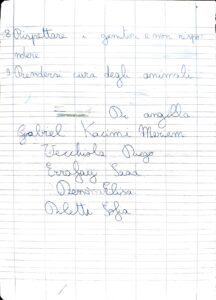 8 Rispettare i genitori e non rispo
ndere
9 Prendersi cura degli animali
Di angilla
Gabriel Kacimi Meriem
Vecchiola Diego
Errafay Saad
Remo Elisa
Piletti Sofia